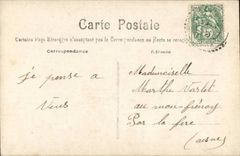 Carte Postale
Certains Pays Étrangers n'acceptent pas la Correspondance au Recto se renseigner
Correspondance
Adresse
Je pense a
Vous
Mademoiselle
Marthe Tartet
au mou-frénoy
Par la fère
(aisne)